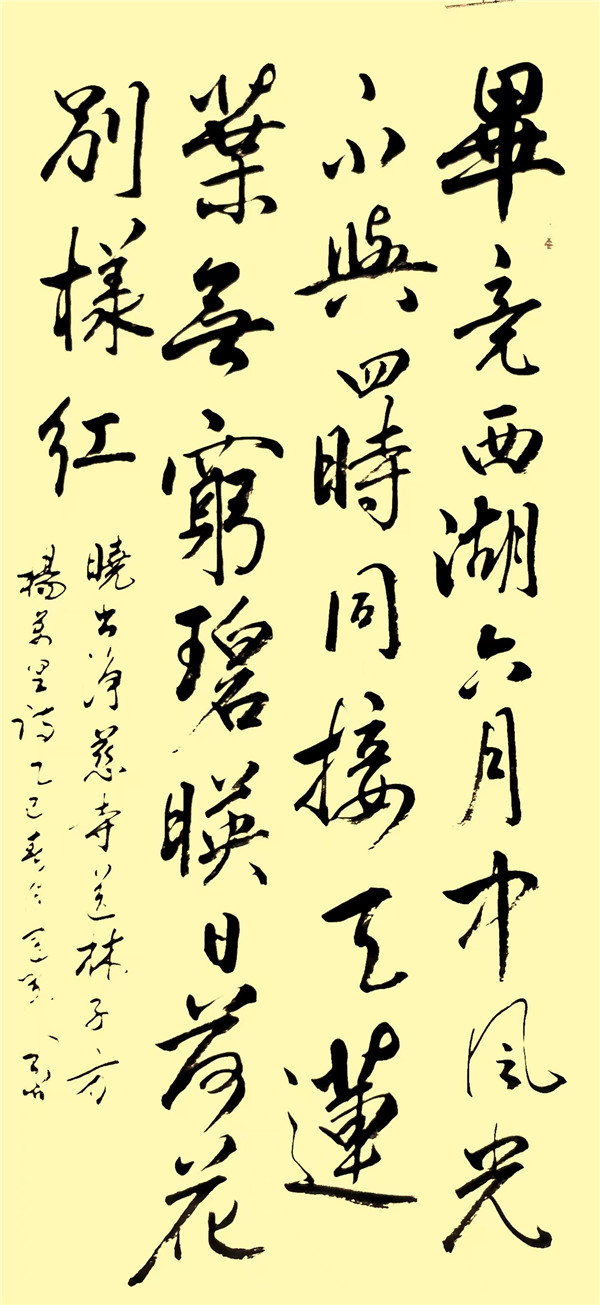 畢竟西湖六月中風光
不與四時同接天蓮
葉無窮碧暎日荷花
別樣紅
曉出淨慈寺送林子方
楊萬里詩乙巳春